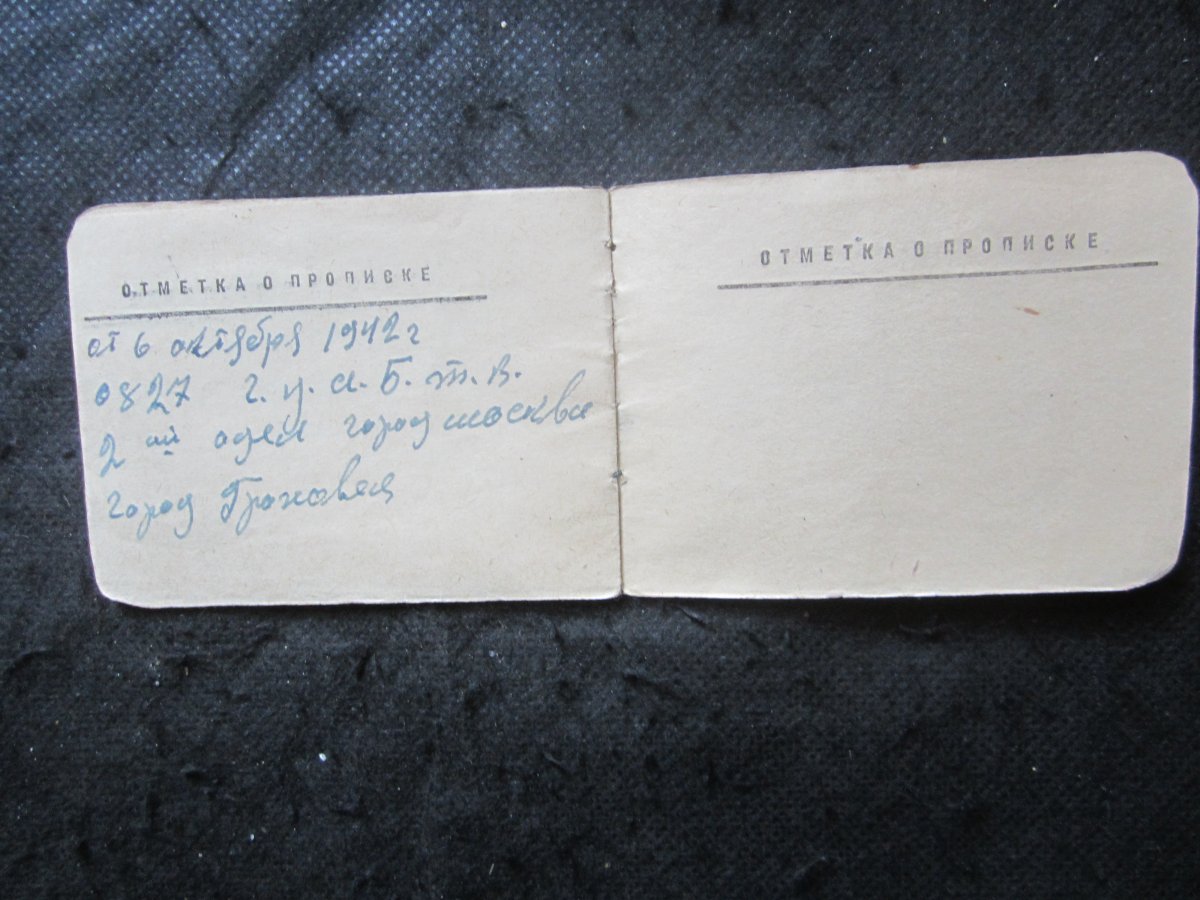 ОТМЕТКА О ПРОПИСКЕ
от 6 октября 1942 г
0827 г. у. а. Б. т. в.
2 ой одел город москва
город
ОТМЕТКА О ПРОПИСКЕ